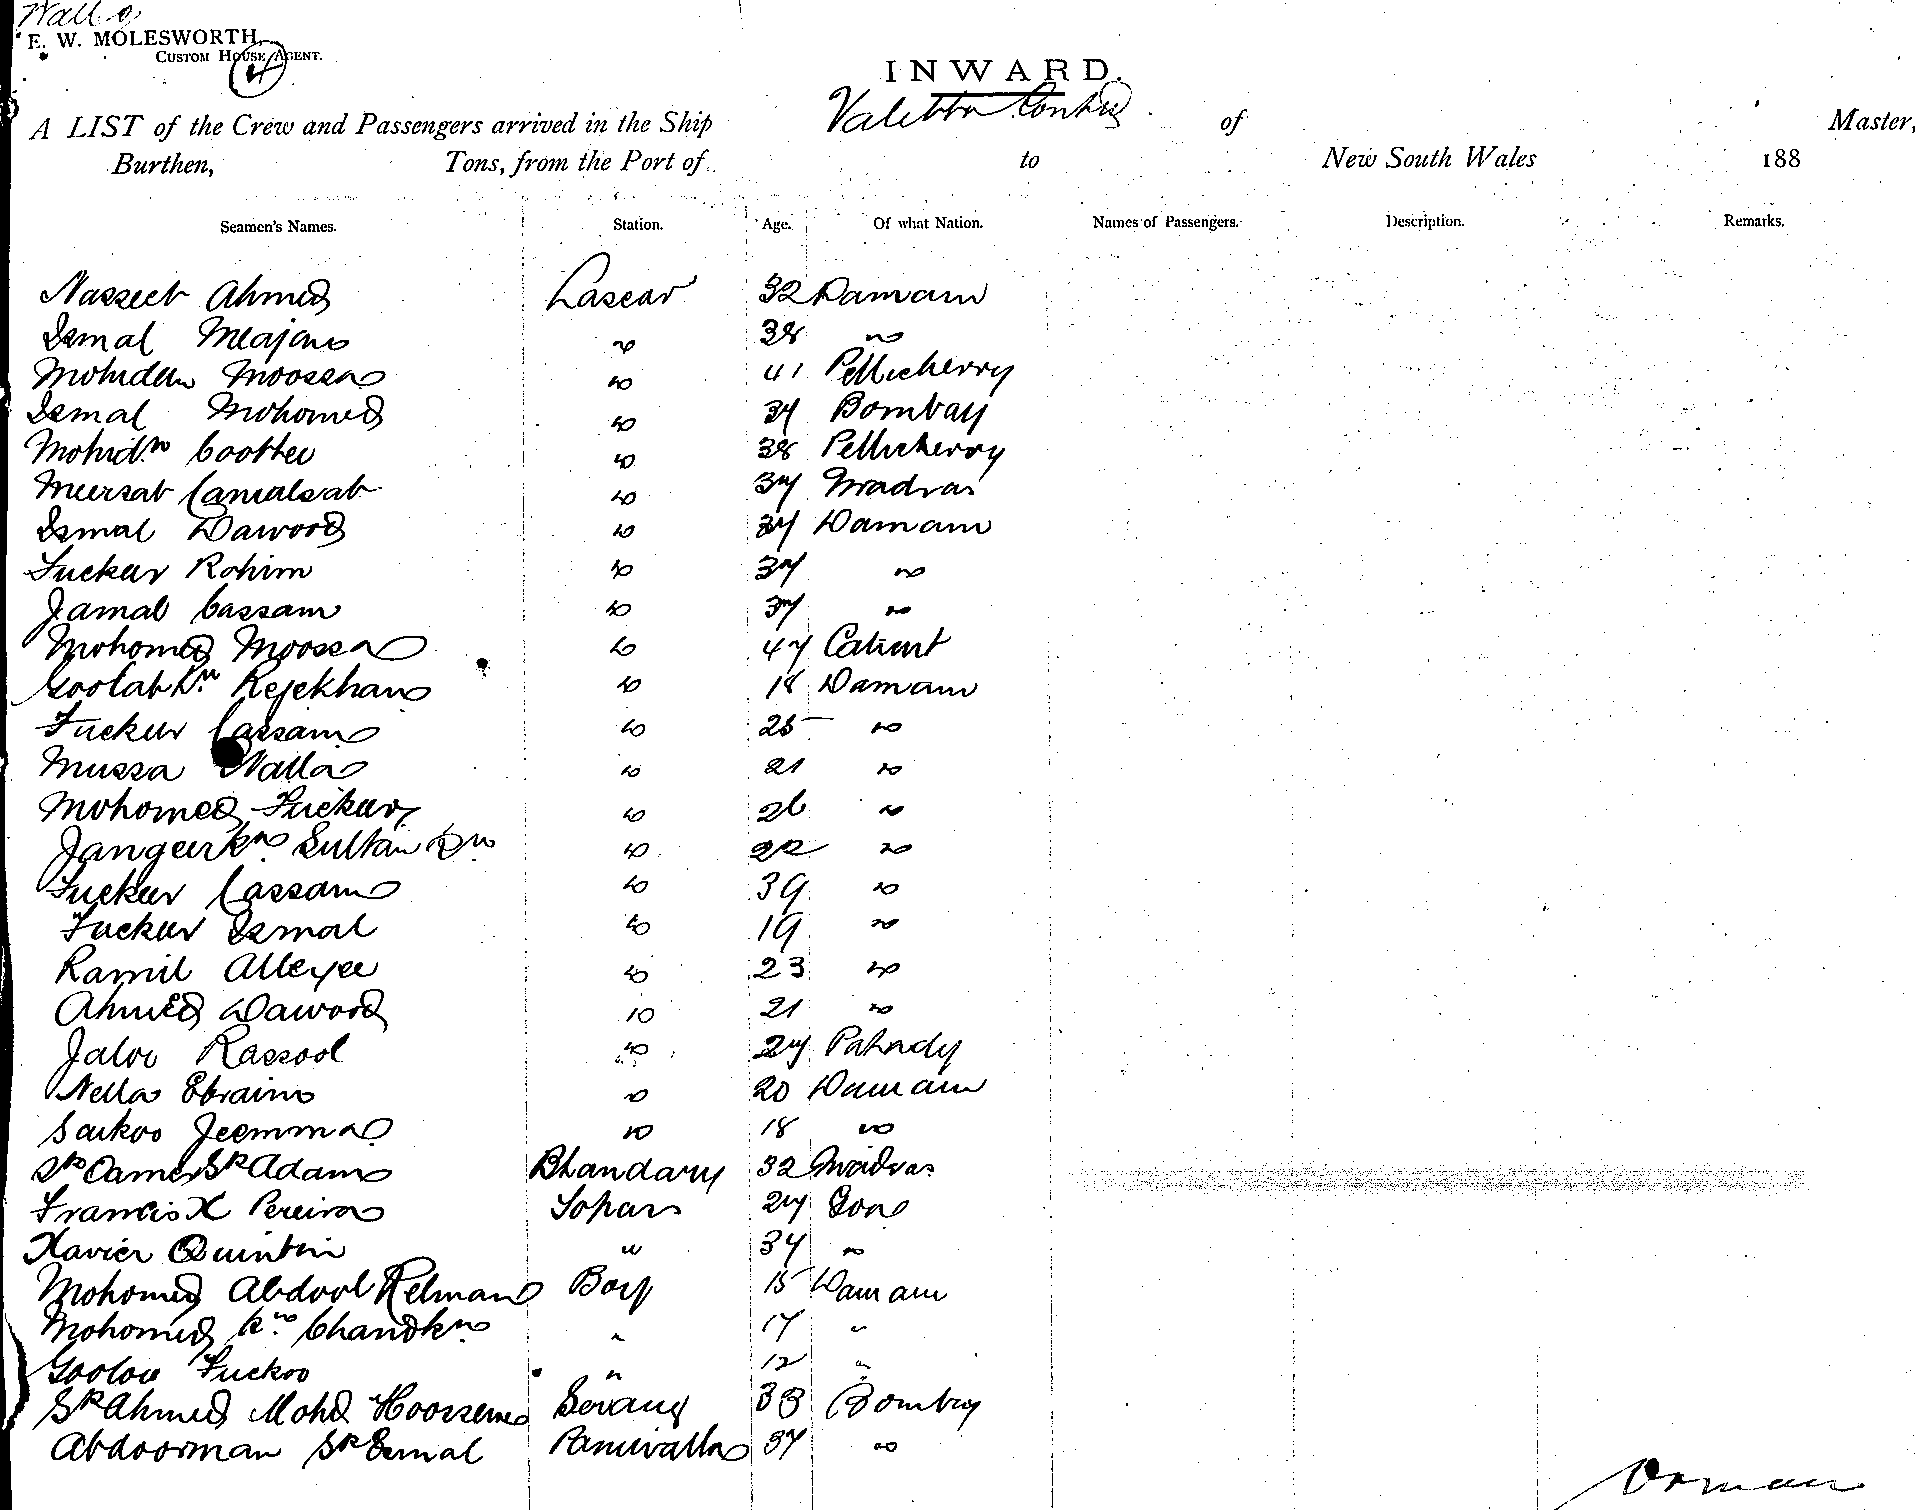 E. W. MOLESWORTH,
CUSTOM HOUSE AGENT.
INWARD.
A LIST of the Crew and Passengers arrived in the Ship Valetta Contd of Master,
Burthen, Tons, from the Port of to New South Wales 188
Seamen's Names. Station. Age. Of what Nation. Names of Passengers. Description. Remarks.
Nasseeb Ahmed Lascar 32 Damaun
Esmal Meajan " 38 "
Mohiden Moossa " 41 Tellicherry
Esmal Mohomed " 34 Bombay
Mohidn Coottee " 38 Tellicherry
Meersab Camalsab " 37 Madras
Esmal Dawood " 34 Damaun
Fuckur Rohim " 37 "
Jamal Cassam " 37 "
Mohomed Moossa " 47 Calicut
Goolab Kn Rejekhan " 18 Damaun
Fuckur Cassam " 25 "
Mussa Nalla " 21 "
Mohomed Fuckur " 26 "
Jangeerkn Sultan Kn " 22 "
Fuckur Cassam " 39 "
Fuckur Esmal " 19 "
Ramil Alleyee " 23 "
Ahmed Dawood " 21 "
Jaloo Rassool " 27
Nella Ebraim " 20 Damaun
Saikoo Jeemma " 18 "
Sk Oamer Sk Adam Bhandary 32 Madras
Francis X Pereira Topass 27 Goa
Xavier Quintin " 34 "
Mohomed Abdool Rehman Boy 15 Damaun
Mohomed Kn Chandkn " 17 "
Fuckoo " 12 "
Sk Ahmed Mohd Hoossen Serang 38 Bombay
Abdoorman Sk Esmal Paniwalla 37 "